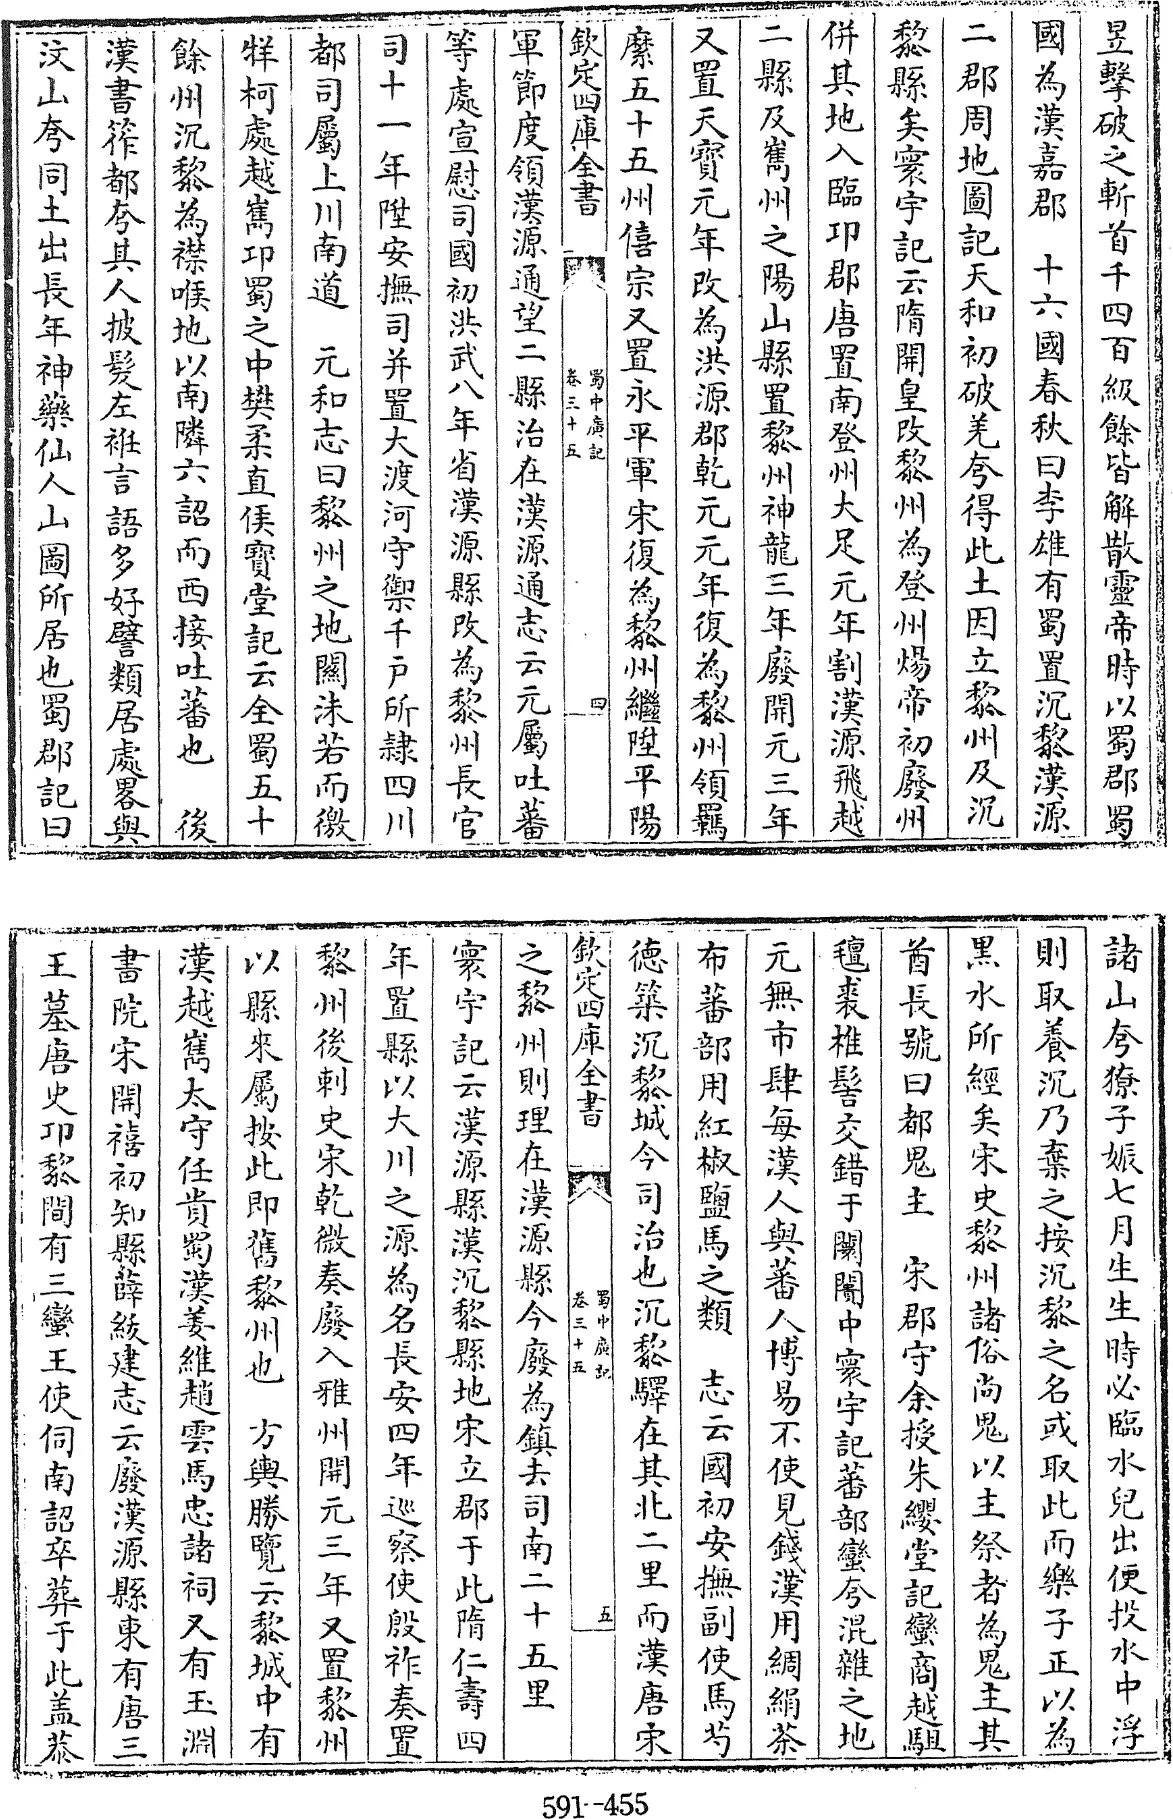 昱擊破之斬首千四百級餘皆解散靈帝時以蜀郡蜀
國為漢嘉郡　十六國春秋曰李雄有蜀置沉黎漢源
二郡周地圖記天和初破羌夸得此土因立黎州及沉
黎縣矣寰宇記云隋開皇改黎州為登州煬帝初廢州
併其地入臨卭郡唐置南登州大足元年割漢源飛越
二縣及嶲州之陽山縣置黎州神龍三年廢開元三年
又置天寶元年改為洪源郡乾元元年復為黎州領羈
縻五十五州僖宗又置永平軍宋復為黎州繼陞平陽
欽定四庫全書
蜀中廣記
卷三十五
四
軍節度領漢源通望二縣治在漢源通志云元屬吐蕃
等處宣慰司國初洪武八年省漢源縣改為黎州長官
司十一年陞安撫司并置大渡河守禦千戶所隷四川
都司屬上川南道　元和志曰黎州之地關沬若而徼
牂柯處越嶲卭蜀之中樊柔直俟寳堂記云全蜀五十
餘州沉黎為襟喉地以南隣六詔而西接吐蕃也　後
漢書筰都夸其人披髮左袵言語多好譬類居處畧與
汶山夸同土出長年神藥仙人山圖所居也蜀郡記曰
諸山夸獠子娠七月生生時必臨水兒出便投水中浮
則取養沉乃棄之按沉黎之名或取此而樂子正以為
黑水所經矣宋史黎州諸俗尚鬼以主祭者為鬼主其
酋長號曰都鬼主　宋郡守余授朱纓堂記蠻商越駔
氊裘椎髻交錯于闤闠中寰宇記蕃部蠻夸混雜之地
元無市肆每漢人與蕃人博易不使見錢漢用綢絹茶
布蕃部用紅椒鹽馬之類　志云國初安撫副使馬芍
德築沉黎城今司治也沉黎驛在其北二里而漢唐宋
欽定四庫全書
蜀中廣記
卷三十五
五
之黎州則理在漢源縣今廢為鎮去司南二十五里
寰宇記云漢源縣漢沉黎縣地宋立郡于此隋仁壽四
年置縣以大川之源為名長安四年巡察使殷祚奏置
黎州後刺史宋乾微奏廢入雅州開元三年又置黎州
以縣來屬按此即舊黎州也　方輿勝覽云黎城中有
漢越嶲太守任貴蜀漢姜維趙雲馬忠諸祠又有玉淵
書院宋開禧初知縣薛紱建志云廢漢源縣東有唐三
王墓唐史卭黎間有三蠻王使伺南詔卒葬于此盖恭
591-455